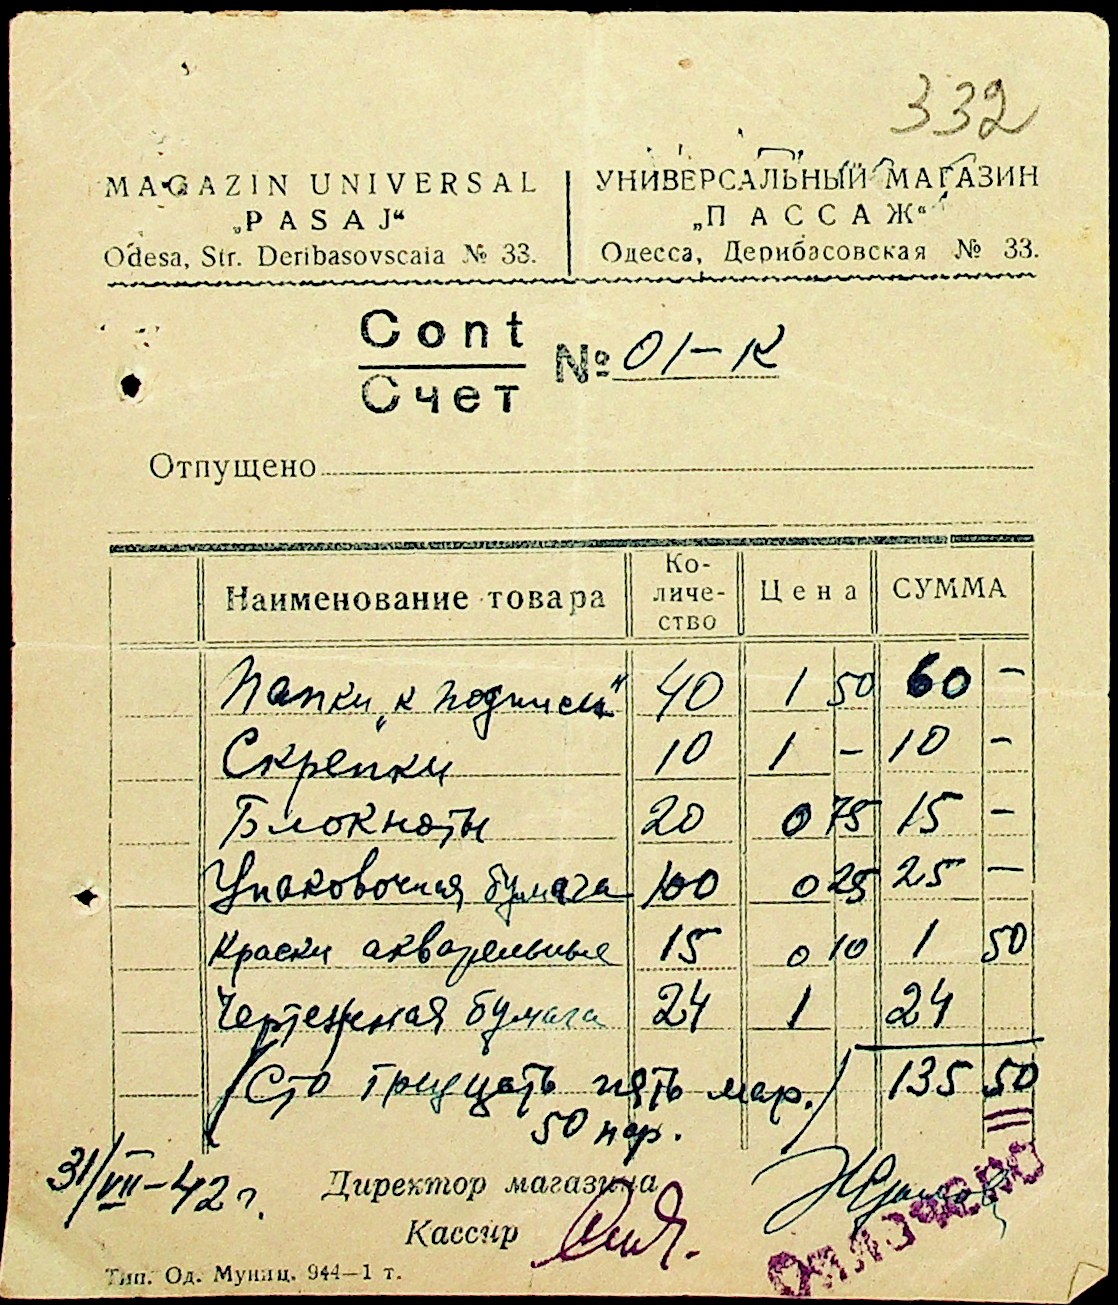 332
MAGAZIN UNIVERSAL
„PASAJ“
Odesa, Str. Deribasovscaia № 33.
УНИВЕРСАЛЬНЫЙ МАГАЗИН
„ПАССАЖ“
Одесса, Дерибасовская № 33.
Cont
Счет
№ 01-К
Отпущено
Наименование товара Количество Цена СУММА
Папки „к подписи“ 40 1 50 60 -
Скрепки 10 1 - 10 -
Блокноты 20 0 75 15 -
Упаковочная бумага 100 0 25 25 -
Краски акварельные 15 0 10 1 50
Чертежная бумага 24 1 24
/Сто тридцать пять мар./ 135 50
50 пф.
31/VII-42 г.
Директор магазина
Кассир
ОПЛОЧЕНО
Тип. Од. Муниц. 944—1 т.